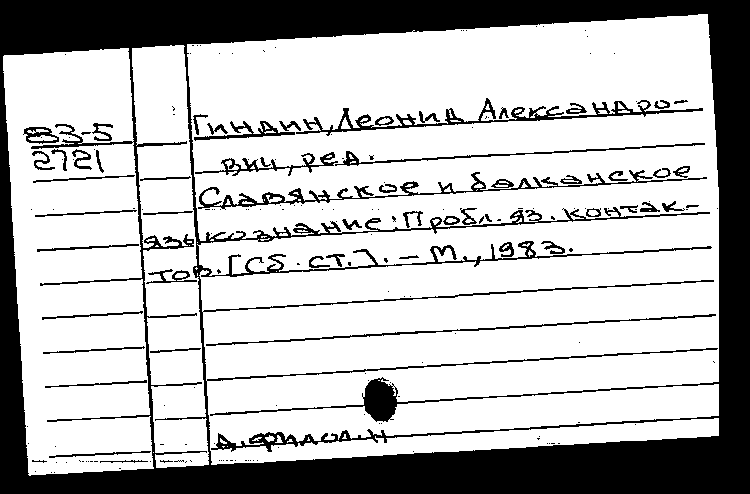 Гиндин, Леонид Александро-
83-5
2721
вич, ред.
Славянское и балканское
языкознание: Пробл. яз. контак-
тов. [Сб. ст.]. – М., 1983.
д. филол. н